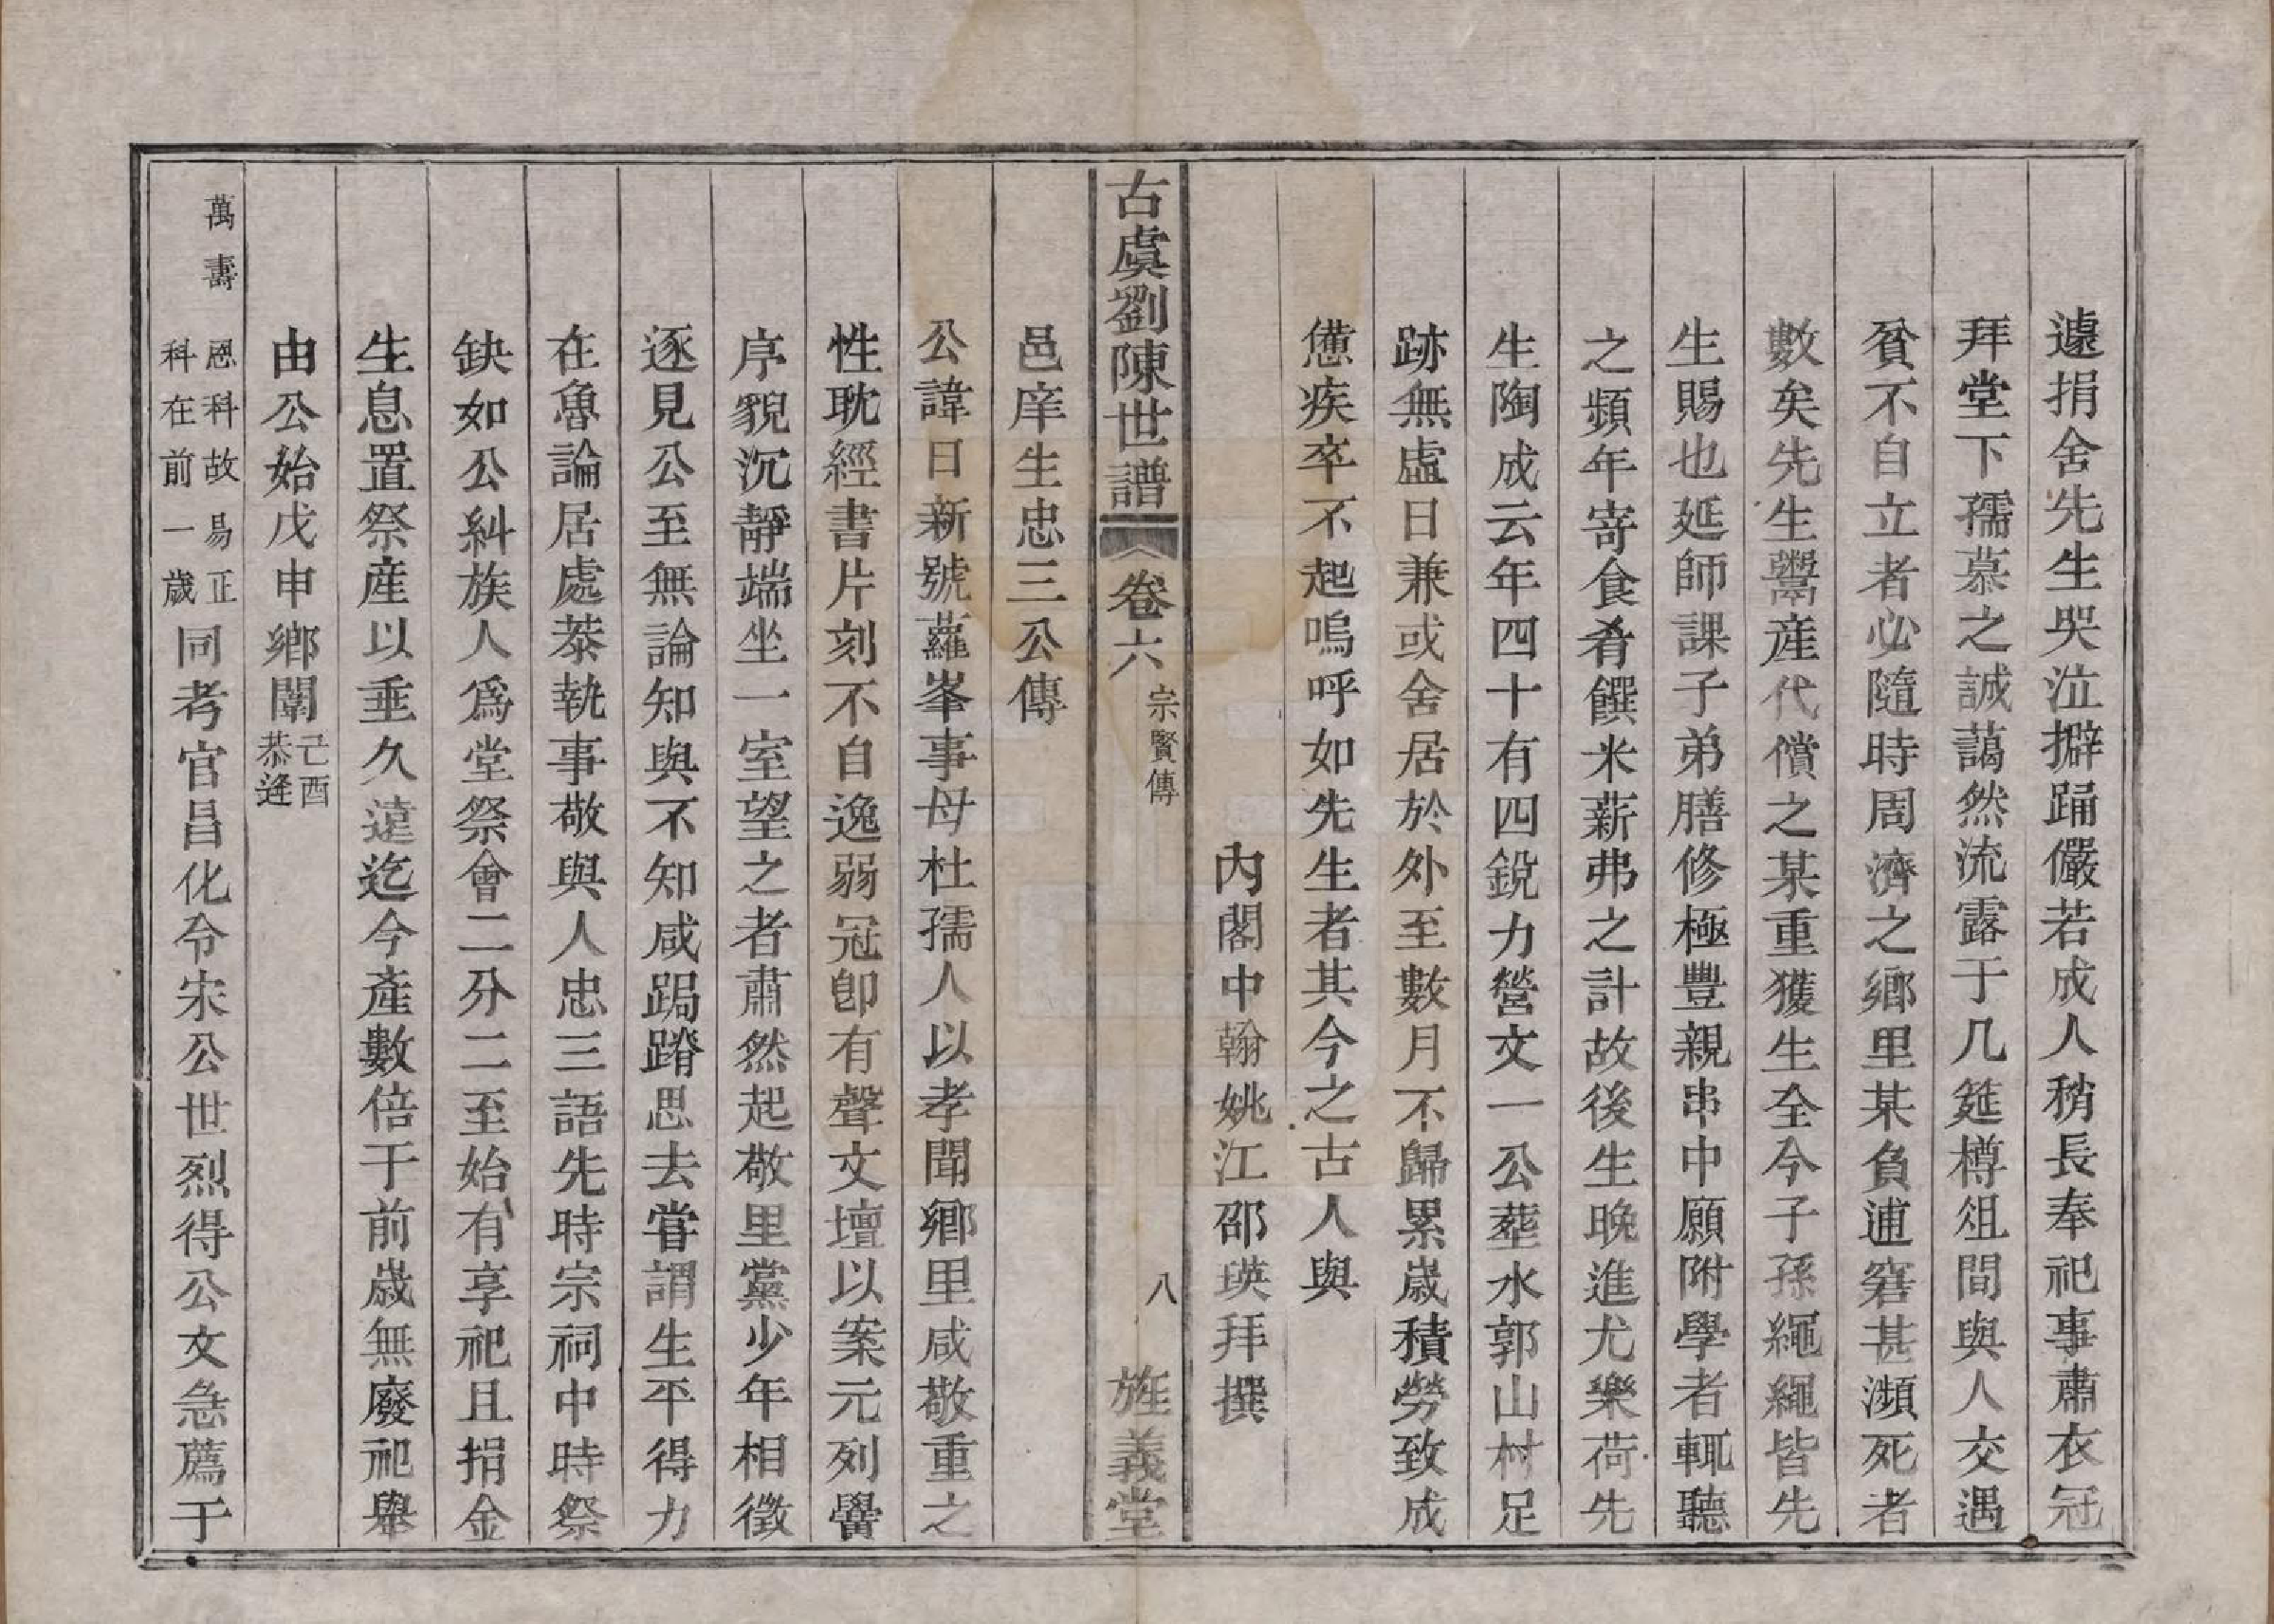 遽捐舍先生哭泣擗踊儼若成人稍長奉祀事肅衣冠
拜堂下孺慕之誠藹然流露于几筵樽俎間與人交遇
貧不自立者必隨時周濟之鄉里某負逋窘甚瀕死者
數矣先生鬻産代償之某重獲生全今子孫繩繩皆先
生賜也延師課子弟膳修極豐親串中願附學者輒聽
之頻年寄食肴饌米薪弗之計故後生晚進尤樂荷先
生陶成云年四十有四銳力營文一公塟水郭山村足
跡無虛日兼或舍居於外至數月不歸累歲積勞致成
憊疾卒不起嗚呼如先生者其今之古人與
內閣中翰姚江邵瑛拜撰
古虞劉陳世譜 卷六 宗賢傳 八 旌義堂
邑庠生忠三公傳
公諱日新號蘿峯事母杜孺人以孝聞鄉里咸敬重之
性耽經書片刻不自逸弱冠卽有聲文壇以案元列黌
序貌沉靜端坐一室望之者肅然起敬里黨少年相徵
逐見公至無論知與不知咸跼蹐思去嘗謂生平得力
在魯論居處恭執事敬與人忠三語先時宗祠中時祭
缺如公糾族人爲堂祭會二分二至始有享祀且捐金
生息置祭産以垂久遠迄今產數倍于前歲無廢祀舉
由公始戊申鄉闈己酉恭逢
萬壽恩科故易正科在前一歲同考官昌化令宋公世烈得公文急薦于